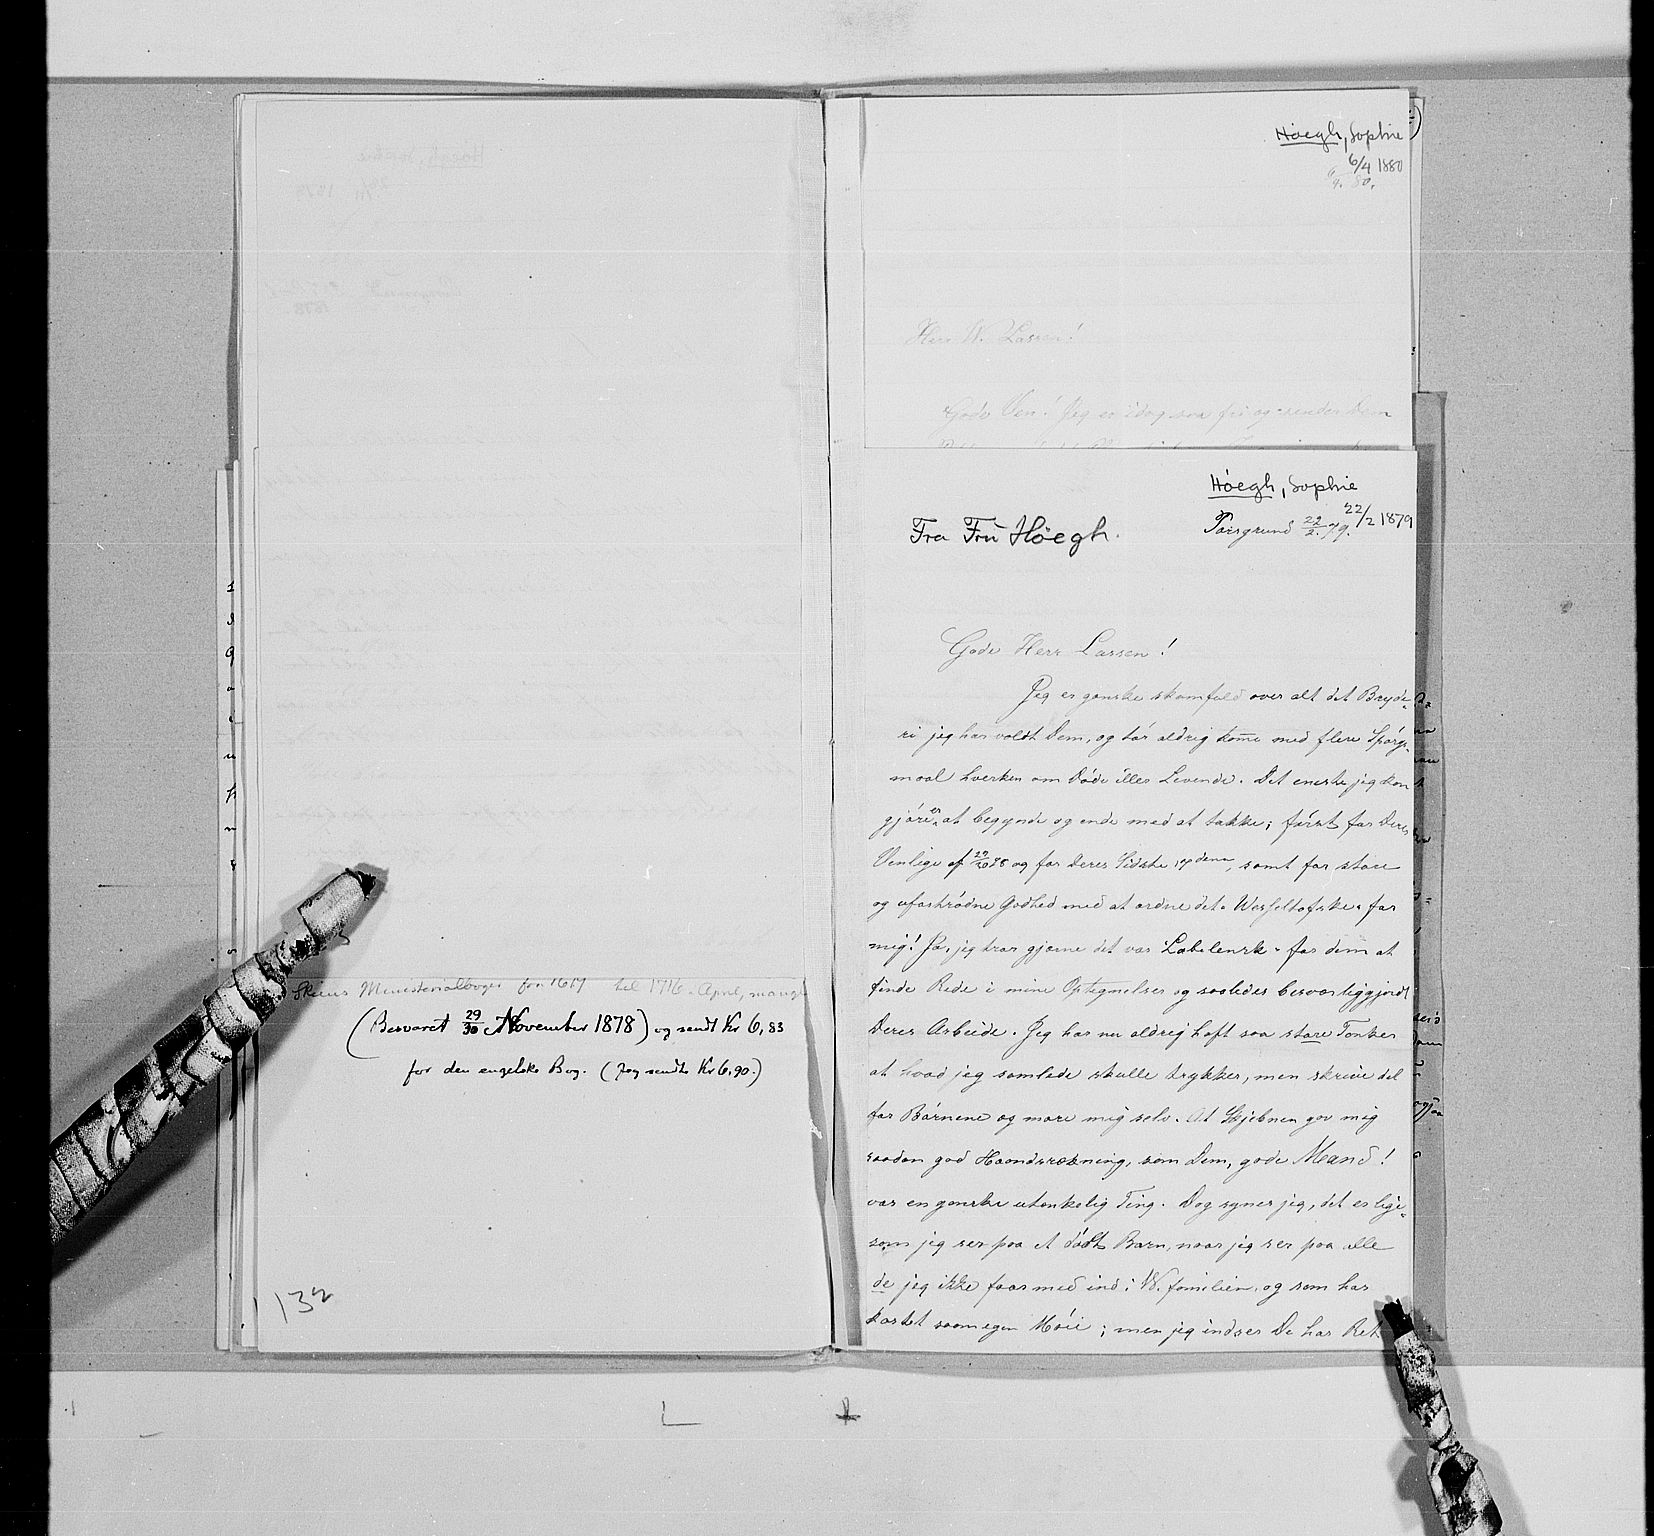 Skiens Ministerialbøger fra 1659 til 1716 April, mangl
(Besvaret 29/30 November 1878) og sendt Kr 6,83
for den engelske Bog. (Jeg sendte Kr 6,90.)
132
Høegh, Sophie
6/4 1880
6/4. 80.
Herr W. Lassen!
Gode Ven! Jeg er idag saa fri og sender Dem
Høegh, Sophie
22/2 1879
Porsgrund 22/2. 79.
Fra Fru Høegh.
Gode Herr Lassen!
Jeg er ganske skamfuld over alt det Bryde-
ri jeg har voldt Dem, og tør aldrig kome med flere Spørgs-
maal hverken om Døde eller Levende. Det eneste jeg kan
gjøre er at begynde og ende med at takke; først for Deres
Venlige af og for Deres Sidste 19dennes, samt for store
og ufortrødne Godhed med at ordne det "Wesseltofske" for
mig! Ja, jeg tror gjerne det var "Labelensk" for dem at
finde Rede i mine Optegnelser og saaledes besværliggjort
Deres Arbeide. Jeg har nu aldrig haft saa store Tanker
at hvad jeg samlede skulle trykkes, men skreve det
for Børnene og more mig selv. At Skjebnen gav mig
saadan god Haandsrækning, som Dem, gode Mand!
var en ganske utenkelig Ting. Dog synes jeg, det er lige-
som jeg ser paa et dødt Barn, naar jeg ser paa alle
de jeg ikke faar med ind i W. familien, og som har
kostet saamegen Møie; men jeg indser De har Ret